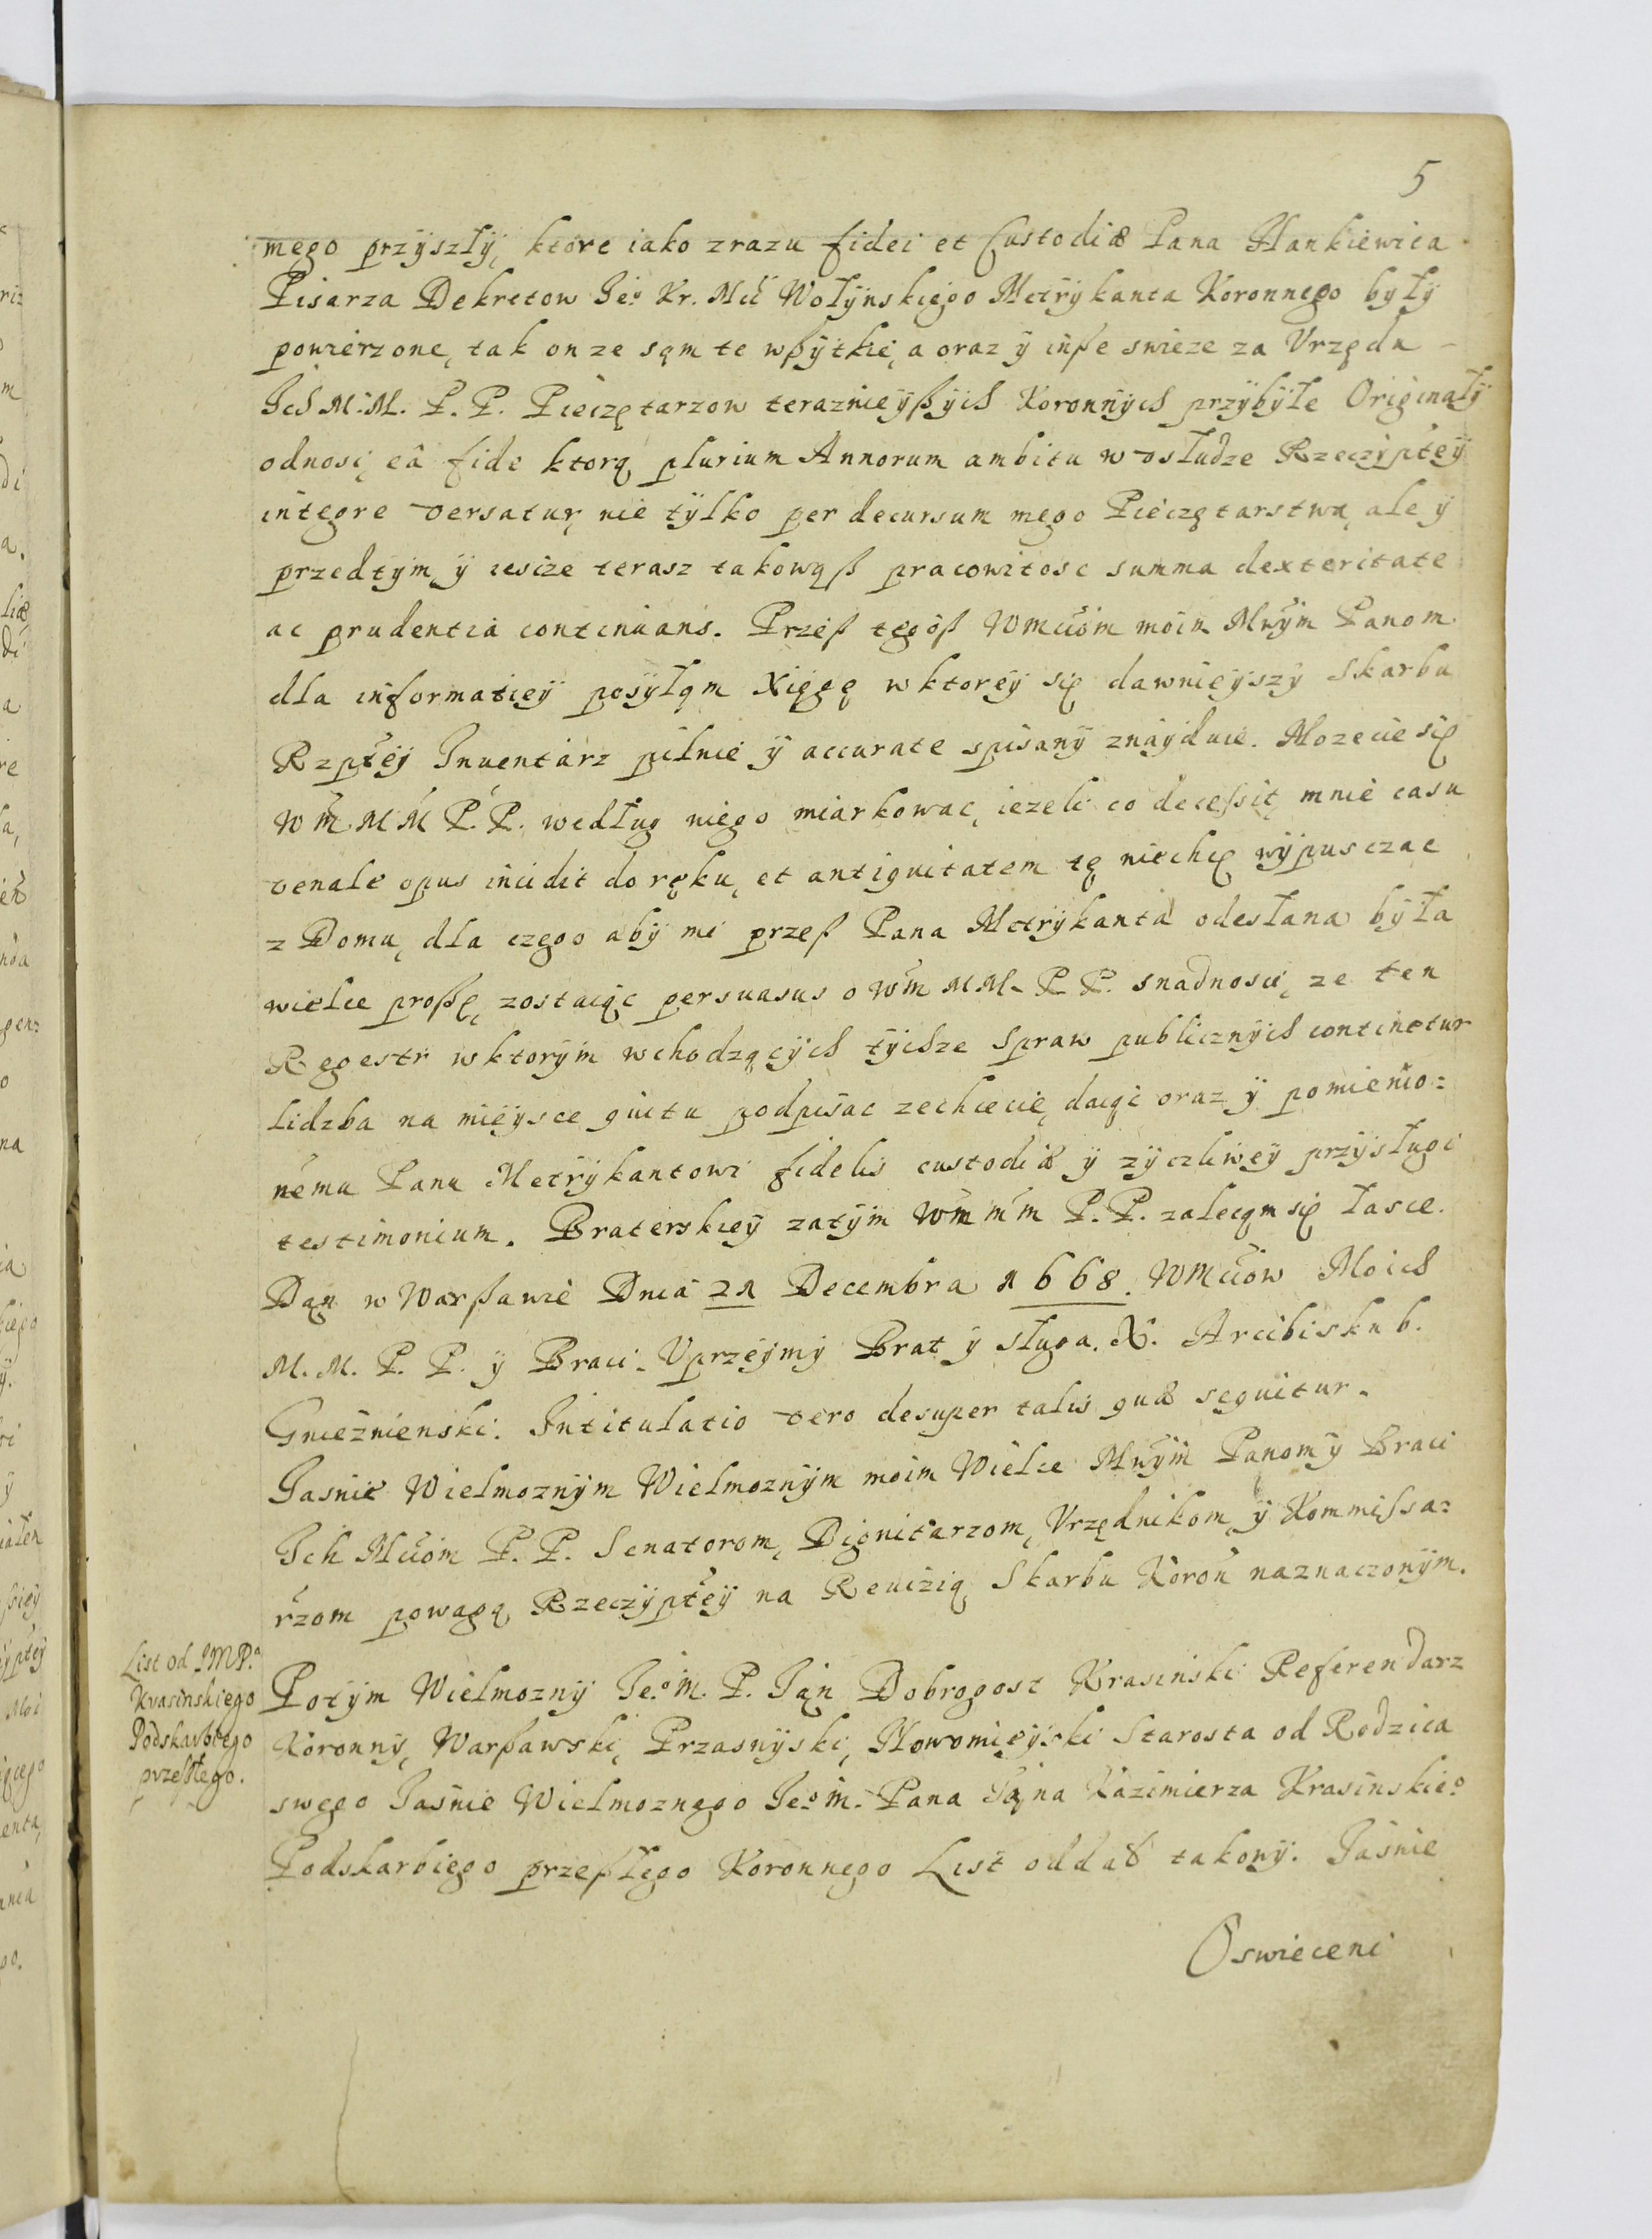 5
mego przÿszłÿ, ktore iako zrazu fidei et Custodiæ Pana Hankiewica
Pisarza Dekretow Je.º Kr. Mći Wołÿnskiego Metrÿkanta Koronnego bÿłÿ
powierzone, tak on ze sąm te wßÿtkie, a oraz ÿ inße swieze za Vrzędu
Ich M.M. P.P. Pieczętarzow teraznieÿßÿch Koronnÿch przÿbÿłe Originałÿ
odnosi, eâ fide ktorą plurium Annorum ambitu w vsłudze Rzeczÿpteÿ
integre versatur, nie tÿlko per decursum mego Pieczętarstwa, ale ÿ
przedtÿm, ÿ iesże terasz takowąß pracowitosc summa dexteritate
ac prudentia continuans. Przeß tegoß WMciom moim Mwÿm Panom
dla informatieÿ posÿłąm Xięgę w ktoreÿ się dawnieÿszÿ Skarbu
Rzpteÿ Inuentarz pilnie ÿ accurate spisanÿ znaÿduie. Mozecie się
Wm MM P.P. według niego miarkowac, iezeli co decessit, mnie casu
venale opus incidit do ręku, et antiquitatem tę niechcę wÿpusczac
z Domu, dla czego abÿ mi przeß Pana Metrÿkanta odesłana bÿła
wielce proßę, zostaiąc persuasus o Wm MM. P.P. snadnosci, ze ten
Regestr w ktorÿm wchodzącÿch tÿchze Spraw publicznÿch continetur
lidzba na mieÿsce quitu podpisac zechcecie, daiąc oraz ÿ pomienio=
nemu Panu Metrÿkantowi fidelis custodiæ ÿ zÿczliweÿ przÿsługi
testimonium. Braterskieÿ zatÿm Wm m m P.P. zalecąm się łasce.
Dąn w Warßawie Dnia 21 Decembra 1668. WMciow Moich
M.M. P.P. ÿ Braci. Vprzeÿmÿ Brat ÿ sługa. X. Arcibiskub.
Gnieznienski. Intitulatio vero desuper talis quæ sequitur.
Jasnie Wielmoznÿm Wielmoznÿm moim Wielce Mwÿm Panom ÿ Braci
Ich Mciom P.P. Senatorom, Dignitarzom, Vrzędnikom, ÿ Kommissa=
rzom powagą Rzeczÿpteÿ na Reuizią Skarbu Koroñ naznaczonÿm.
List od JMP.ª
Krasinskiego
Podskarbiego
przeßłego.
Potÿm Wielmoznÿ Je.º M. P. Jąn Dobrogost Krasinski Referendarz
Koronnÿ, Warßawski, Przasnÿski, Nowomieÿski Starosta od Rodzica
swego Jasnie Wielmoznego Je.º M. Pana Jąna Kazimierza Krasinskie.º
Podskarbiego przeßłego Koronnego List oddał takowÿ. Jasnie
Oswieceni